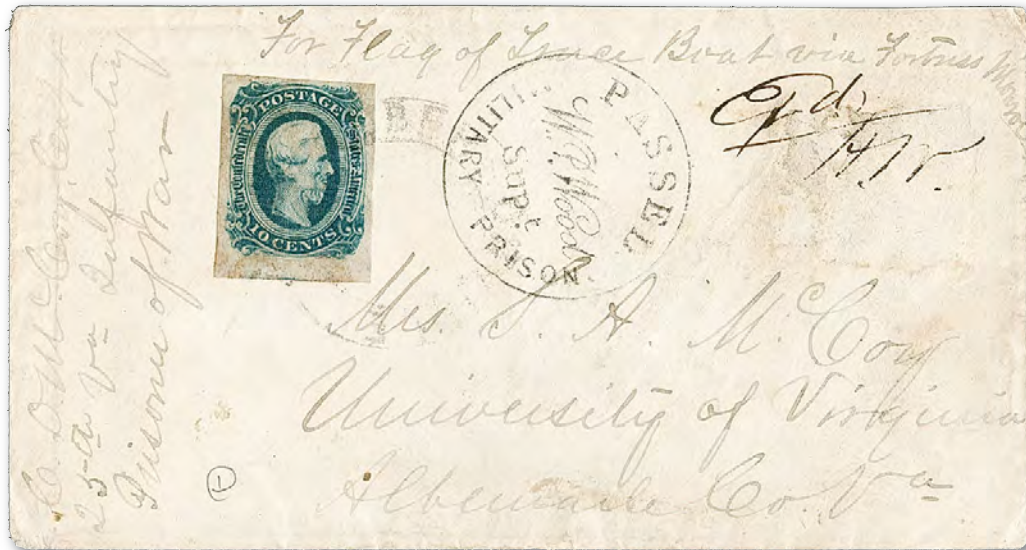 For Flag of Truce Boat via Fortress Monroe
POSTAGE
The Confederate States of America
10 CENTS
PASSED
W.P. Wood
Supt
MILITARY PRISON
Mrs. S. A. McCoy
University of Virginia
Albemarle Co. Va
C. D. McCoy, Co.
25th Va Infantry
Prisoner of War
1